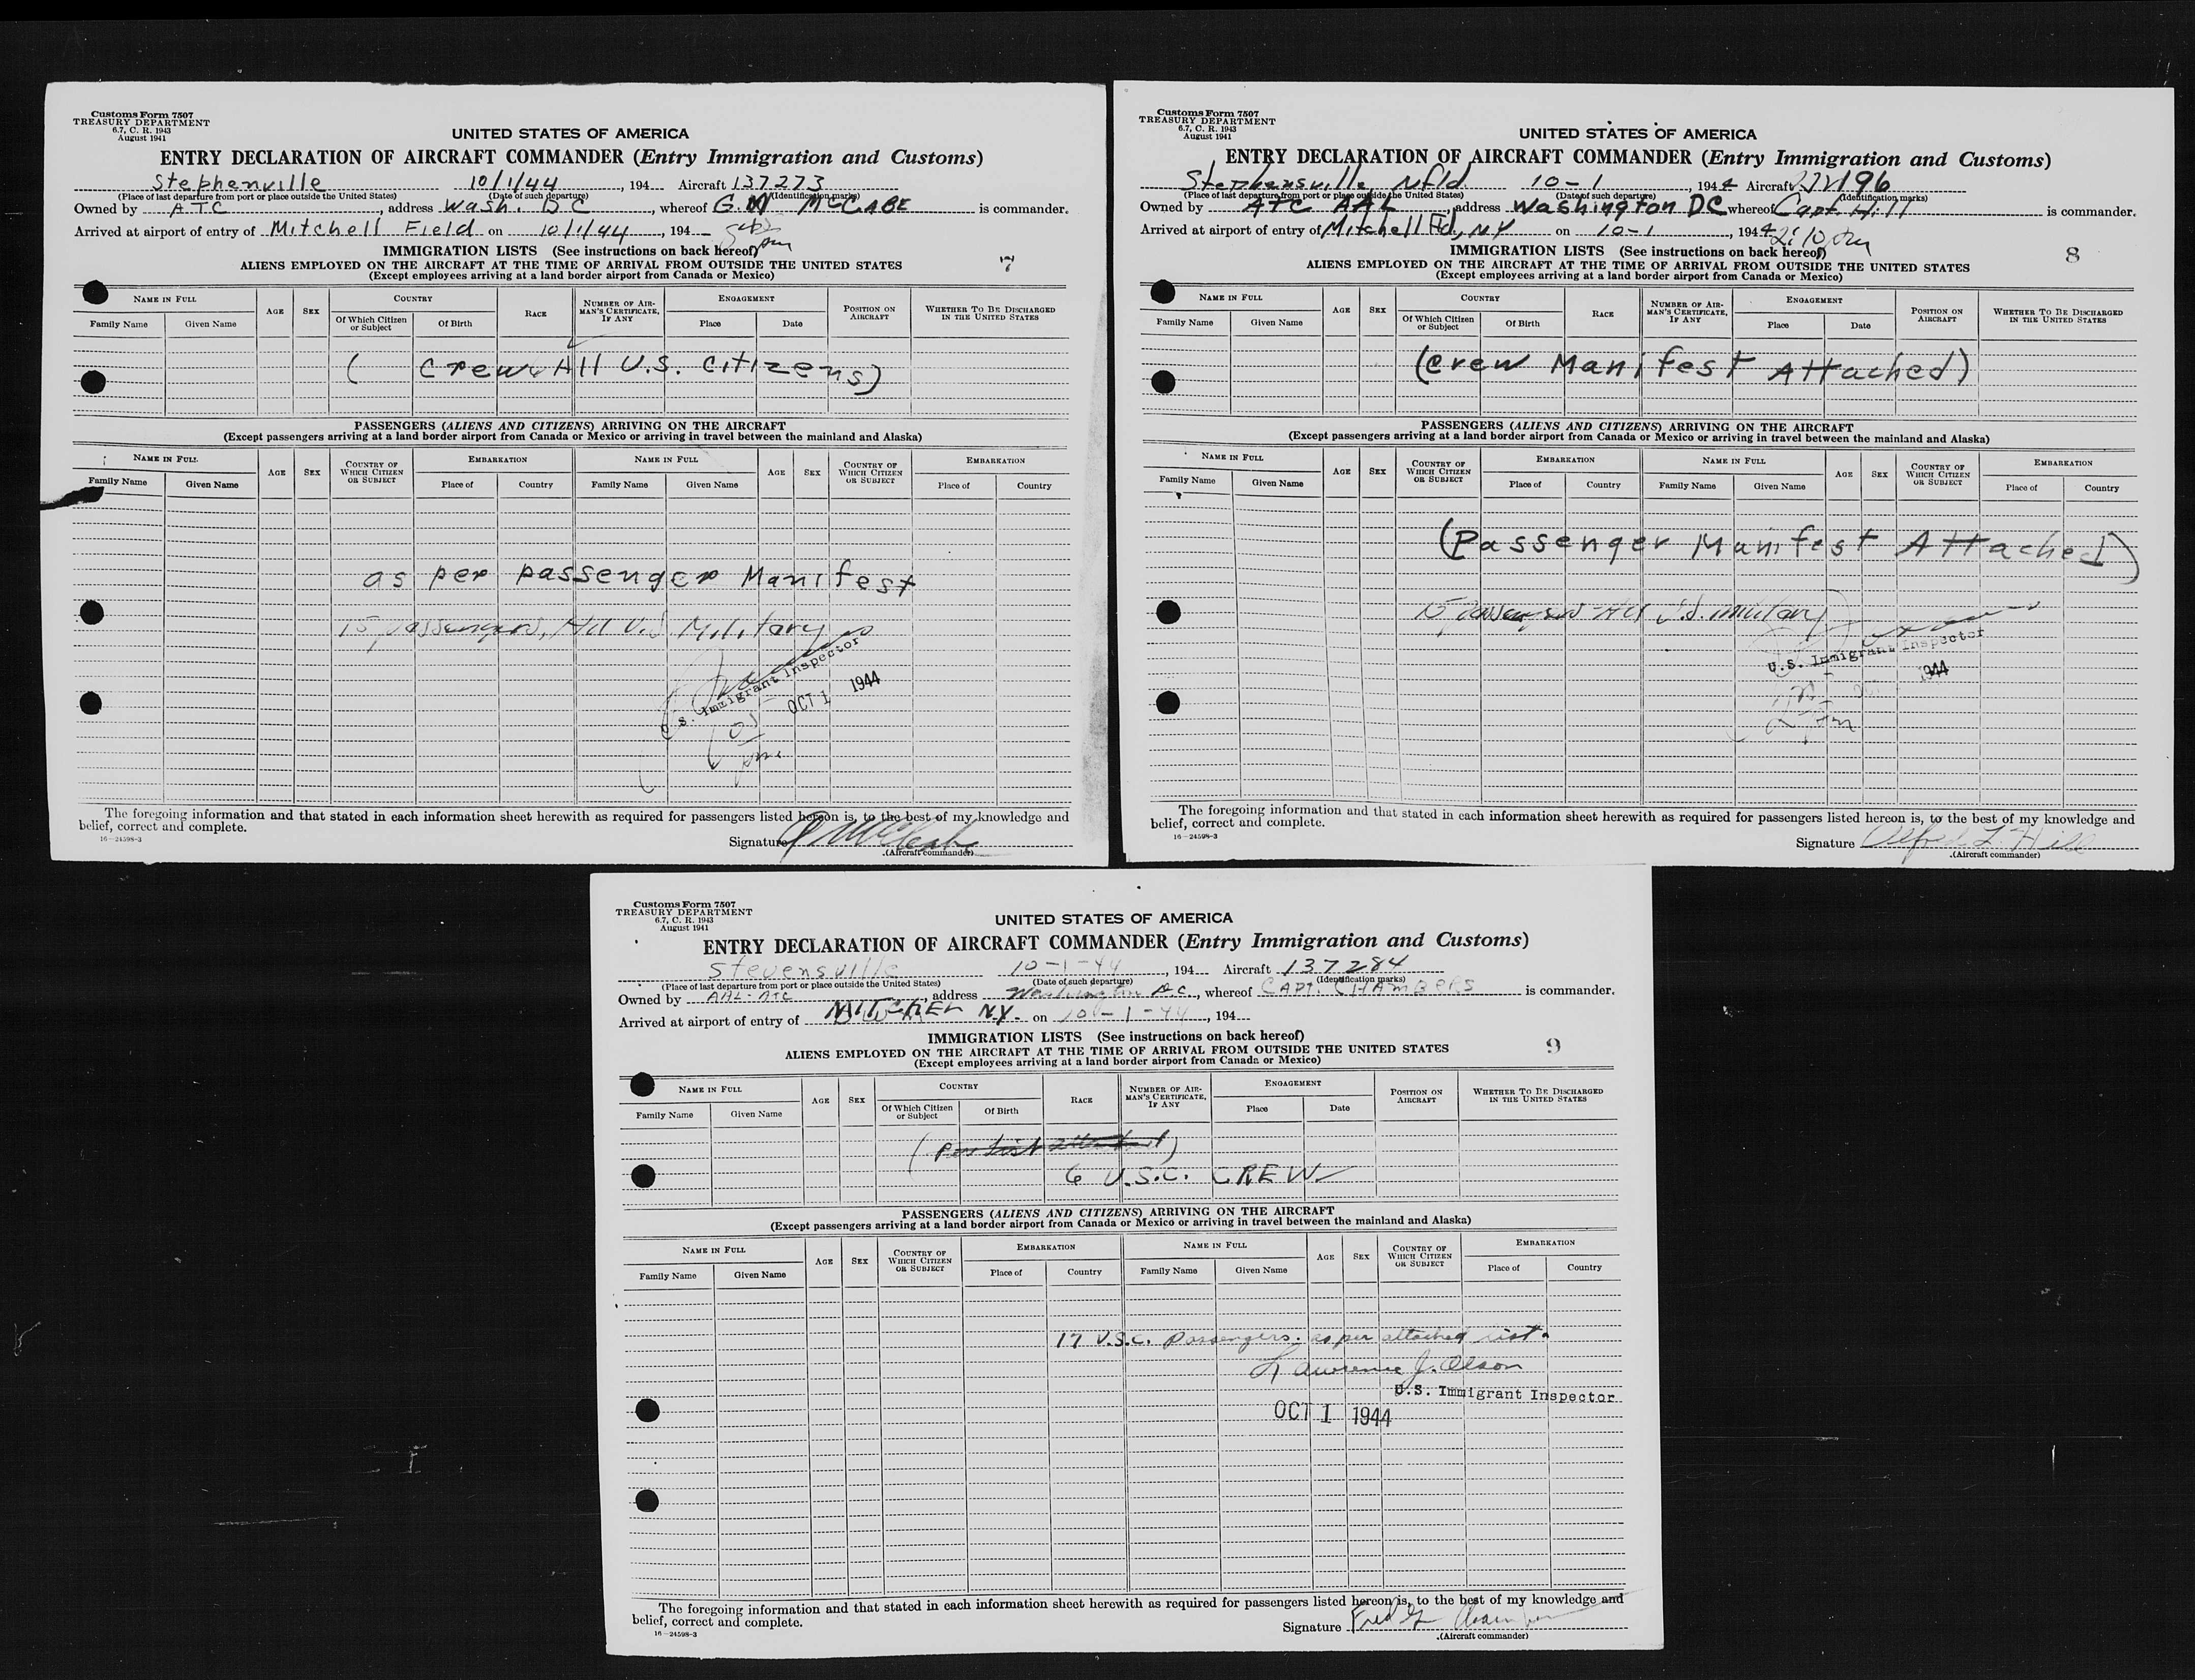 Customs Form 7507
TREASURY DEPARTMENT
6.7, C. R. 1943
August 1941
UNITED STATES OF AMERICA
ENTRY DECLARATION OF AIRCRAFT COMMANDER (Entry Immigration and Customs)
Stephenville 10/1/44, 194 Aircraft 137273
(Place of last departure from port or place outside the United States) (Date of such departure) (Identification marks)
Owned by ATC, address Wash. DC, whereof G.W McCABE is commander.
Arrived at airport of entry of Mitchell Field on 10/1/44, 194 pm
IMMIGRATION LISTS (See instructions on back hereof)
7
ALIENS EMPLOYED ON THE AIRCRAFT AT THE TIME OF ARRIVAL FROM OUTSIDE THE UNITED STATES
(Except employees arriving at a land border airport from Canada or Mexico)
NAME IN FULL AGE SEX COUNTRY RACE NUMBER OF AIRMAN'S CERTIFICATE, IF ANY ENGAGEMENT POSITION ON AIRCRAFT WHETHER TO BE DISCHARGED IN THE UNITED STATES
Family Name Given Name Of Which Citizen or Subject Of Birth Place Date
( Crew All U.S. Citizens)
PASSENGERS (ALIENS AND CITIZENS) ARRIVING ON THE AIRCRAFT
(Except passengers arriving at a land border airport from Canada or Mexico or arriving in travel between the mainland and Alaska)
NAME IN FULL AGE SEX COUNTRY OF WHICH CITIZEN OR SUBJECT EMBARKATION NAME IN FULL AGE SEX COUNTRY OF WHICH CITIZEN OR SUBJECT EMBARKATION
Family Name Given Name Place of Country Family Name Given Name Place of Country
as per passenger Manifest
15 passengers, All U.S Military
U.S. Immigrant Inspector
OCT 1 1944
pm
The foregoing information and that stated in each information sheet herewith as required for passengers listed hereon is, to the best of my knowledge and
belief, correct and complete.
16—24598-3
Signature G W McCabe
(Aircraft commander)
Customs Form 7507
TREASURY DEPARTMENT
6.7, C. R. 1943
August 1941
UNITED STATES OF AMERICA
ENTRY DECLARATION OF AIRCRAFT COMMANDER (Entry Immigration and Customs)
Stephensville, Nfld 10-1, 1944 Aircraft
(Place of last departure from port or place outside the United States) (Date of such departure) (Identification marks)
Owned by ATC AAL address Washington DC whereof Capt. Hill is commander.
Arrived at airport of entry of Mitchell Fld, NY on 10-1, 1944 2:10 pm
IMMIGRATION LISTS (See instructions on back hereof)
8
ALIENS EMPLOYED ON THE AIRCRAFT AT THE TIME OF ARRIVAL FROM OUTSIDE THE UNITED STATES
(Except employees arriving at a land border airport from Canada or Mexico)
NAME IN FULL AGE SEX COUNTRY RACE NUMBER OF AIRMAN'S CERTIFICATE, IF ANY ENGAGEMENT POSITION ON AIRCRAFT WHETHER TO BE DISCHARGED IN THE UNITED STATES
Family Name Given Name Of Which Citizen or Subject Of Birth Place Date
(Crew Manifest Attached)
PASSENGERS (ALIENS AND CITIZENS) ARRIVING ON THE AIRCRAFT
(Except passengers arriving at a land border airport from Canada or Mexico or arriving in travel between the mainland and Alaska)
NAME IN FULL AGE SEX COUNTRY OF WHICH CITIZEN OR SUBJECT EMBARKATION NAME IN FULL AGE SEX COUNTRY OF WHICH CITIZEN OR SUBJECT EMBARKATION
Family Name Given Name Place of Country Family Name Given Name Place of Country
(Passenger Manifest Attached)
15 passengers All U.S. military
U.S. Immigrant Inspector
1944
The foregoing information and that stated in each information sheet herewith as required for passengers listed hereon is, to the best of my knowledge and
belief, correct and complete.
16—24598-3
Signature Alfred L Hill
(Aircraft commander)
Customs Form 7507
TREASURY DEPARTMENT
6.7, C. R. 1943
August 1941
UNITED STATES OF AMERICA
ENTRY DECLARATION OF AIRCRAFT COMMANDER (Entry Immigration and Customs)
Stevensville 10-1-44, 194 Aircraft 137284
(Place of last departure from port or place outside the United States) (Date of such departure) (Identification marks)
Owned by AAL-ATC, address Washington D.C., whereof CAPT. CHAMBERS is commander.
Arrived at airport of entry of MITCHEL N.Y. on 10-1-44, 194
IMMIGRATION LISTS (See instructions on back hereof)
9
ALIENS EMPLOYED ON THE AIRCRAFT AT THE TIME OF ARRIVAL FROM OUTSIDE THE UNITED STATES
(Except employees arriving at a land border airport from Canada or Mexico)
NAME IN FULL AGE SEX COUNTRY RACE NUMBER OF AIRMAN'S CERTIFICATE, IF ANY ENGAGEMENT POSITION ON AIRCRAFT WHETHER TO BE DISCHARGED IN THE UNITED STATES
Family Name Given Name Of Which Citizen or Subject Of Birth Place Date
6 U.S.C. CREW
PASSENGERS (ALIENS AND CITIZENS) ARRIVING ON THE AIRCRAFT
(Except passengers arriving at a land border airport from Canada or Mexico or arriving in travel between the mainland and Alaska)
NAME IN FULL AGE SEX COUNTRY OF WHICH CITIZEN OR SUBJECT EMBARKATION NAME IN FULL AGE SEX COUNTRY OF WHICH CITIZEN OR SUBJECT EMBARKATION
Family Name Given Name Place of Country Family Name Given Name Place of Country
17 U.S.C. Passengers. as per attached list.
Lawrence J. Olson
U.S. Immigrant Inspector
OCT 1 1944
The foregoing information and that stated in each information sheet herewith as required for passengers listed hereon is, to the best of my knowledge and
belief, correct and complete.
16—24598-3
Signature Fred
(Aircraft commander)